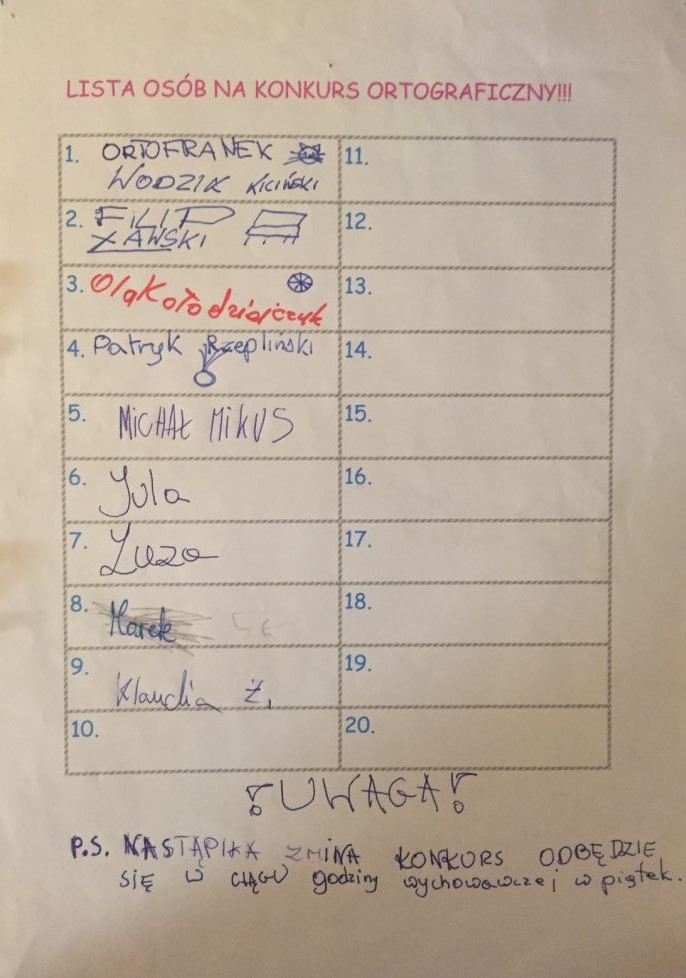 LISTA OSÓB NA KONKURS ORTOGRAFICZNY!!!
1. ORTOFRANEK
WODZIK KICIŃSKI
2. FILIP
ŻAWSKI
3. Ola Kołodziejczyk
4. Patryk Rzepliński
5. MICHAŁ MIKUS
6. Jula
7. Zuza
8. Marek
9. Klaudia Ż.
10.
11.
12.
13.
14.
15.
16.
17.
18.
19.
20.
! UWAGA!
P.S. NASTĄPIŁA ZMINA KONKURS ODBĘDZIE
SIĘ W CIĄGU godziny wychowawczej w piątek.